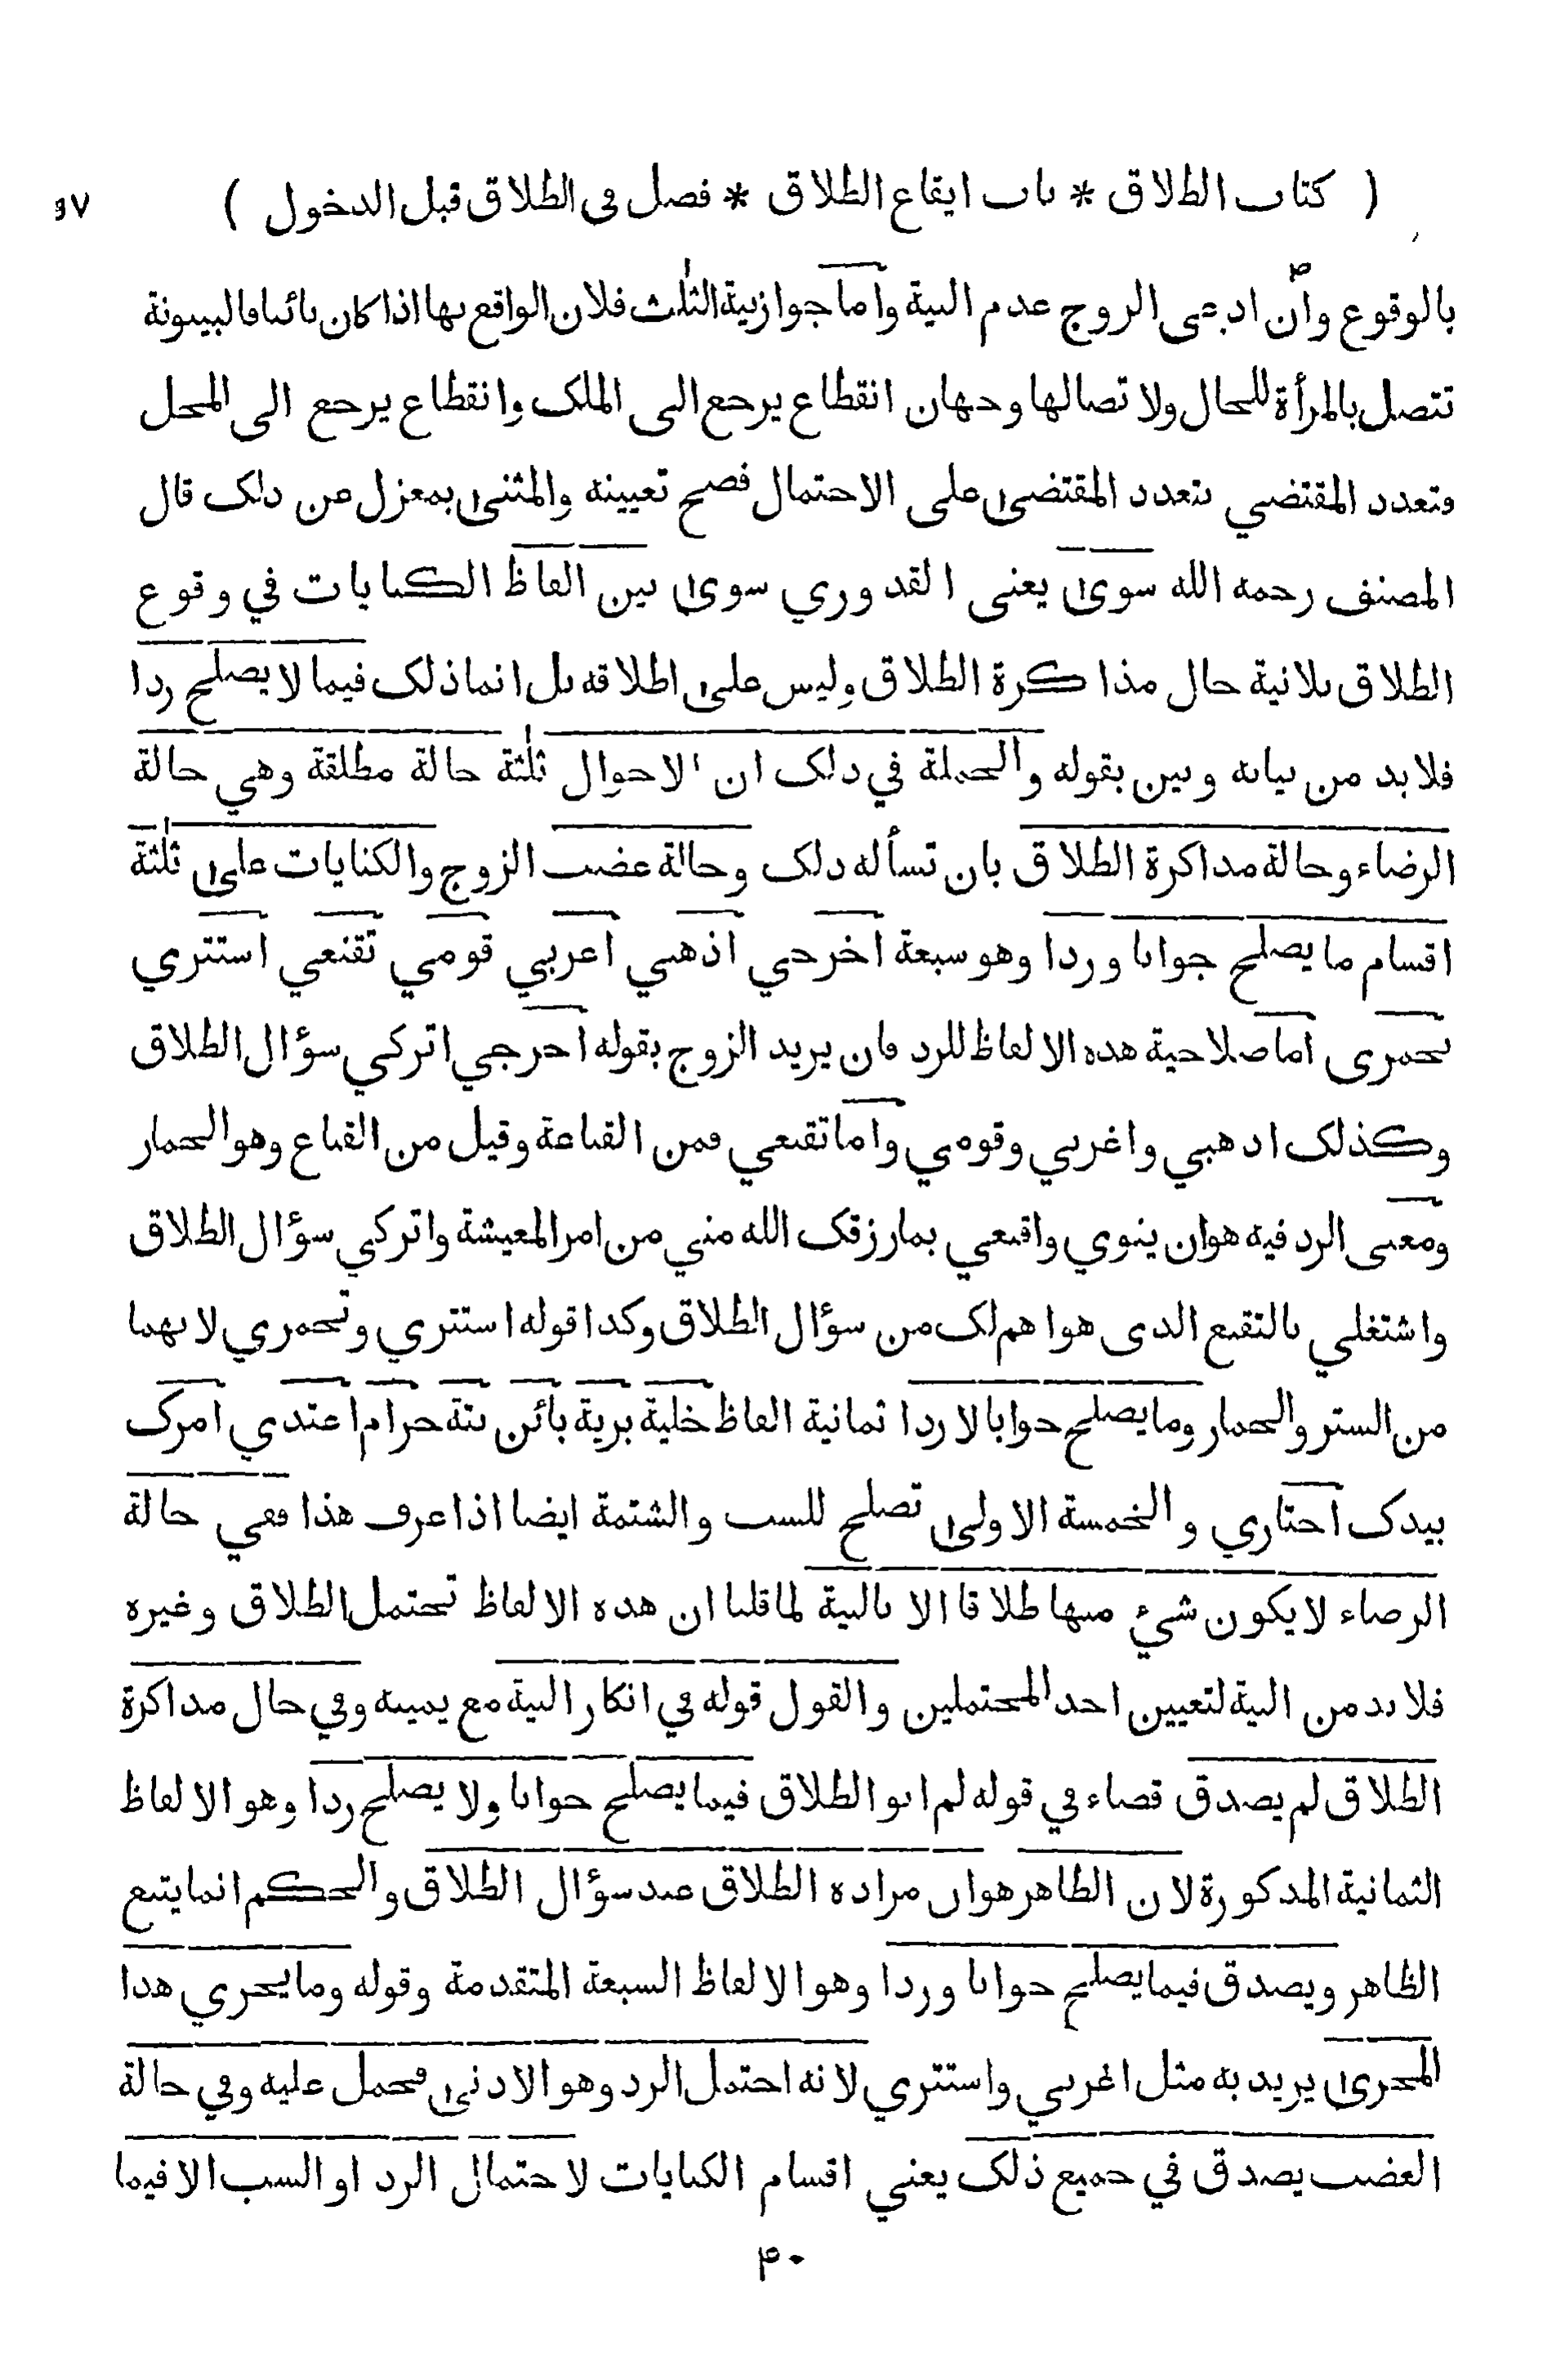 ( كتاب الطلاق * باب ايقاع الطلاق * فصل في الطلاق قبل الدخول ) ٩٧
بالوقوع وان ادعى الزوج عدم النية واما جواز نية الثلث فلان الواقع بها اذا كان بائنا فالبينونة
تتصل بالمرأة للحال ولاتصالها وجهان انقطاع يرجع الى الملك وانقطاع يرجع الى المحل
وتعدد المقتضي بتعدد المقتضى على الاحتمال فصح تعيينه والمثنى بمعزل عن ذلك قال
المصنف رحمه الله سوى يعنى القدوري سوى بين الفاظ الكنايات في وقوع
الطلاق بلانية حال مذاكرة الطلاق وليس على اطلاقه بل انما ذلك فيما لا يصلح ردا
فلابد من بيانه وبين بقوله والجملة في ذلك ان الاحوال ثلثة حالة مطلقة وهي حالة
الرضاء وحالة مذاكرة الطلاق بان تسأله ذلك وحالة غضب الزوج والكنايات على ثلثة
اقسام ما يصلح جوابا وردا وهو سبعة اخرجي اذهبي اغربي قومي تقنعي استتري
تخمرى اما صلاحية هذه الالفاظ للرد فان يريد الزوج بقوله اخرجي اتركي سؤال الطلاق
وكذلك اذهبي واغربي وقومي واما تقنعي فمن القناعة وقيل من القناع وهو الخمار
ومعنى الرد فيه هو ان ينوي واقنعي بمارزقك الله مني من امر المعيشة واتركي سؤال الطلاق
واشتغلي بالتقنع الذى هو اهم لك من سؤال الطلاق وكذا قوله استتري وتخمري لانهما
من الستر والخمار وما يصلح جوابا لا ردا ثمانية الفاظ خلية برية بائن بتة حرام اعتدي امرك
بيدك اختاري والخمسة الاولى تصلح للسب والشتمة ايضا اذا عرف هذا ففي حالة
الرضاء لا يكون شيء منها طلاقا الا بالنية لما قلنا ان هذه الالفاظ تحتمل الطلاق وغيره
فلابد من النية لتعيين احد المحتملين والقول قوله في انكار النية مع يمينه وفي حال مذاكرة
الطلاق لم يصدق قضاء في قوله لم انو الطلاق فيما يصلح جوابا ولا يصلح ردا وهو الالفاظ
الثمانية المذكورة لان الظاهر هو ان مراده الطلاق عند سؤال الطلاق والحكم انما يتبع
الظاهر ويصدق فيما يصلح جوابا وردا وهو الالفاظ السبعة المتقدمة وقوله وما يجري هذا
المجرى يريد به مثل اغربي واستتري لانه احتمل الرد وهو الادنى فحمل عليه وفي حالة
الغضب يصدق في جميع ذلك يعني اقسام الكنايات لاحتمال الرد او السب الا فيما
۴۰